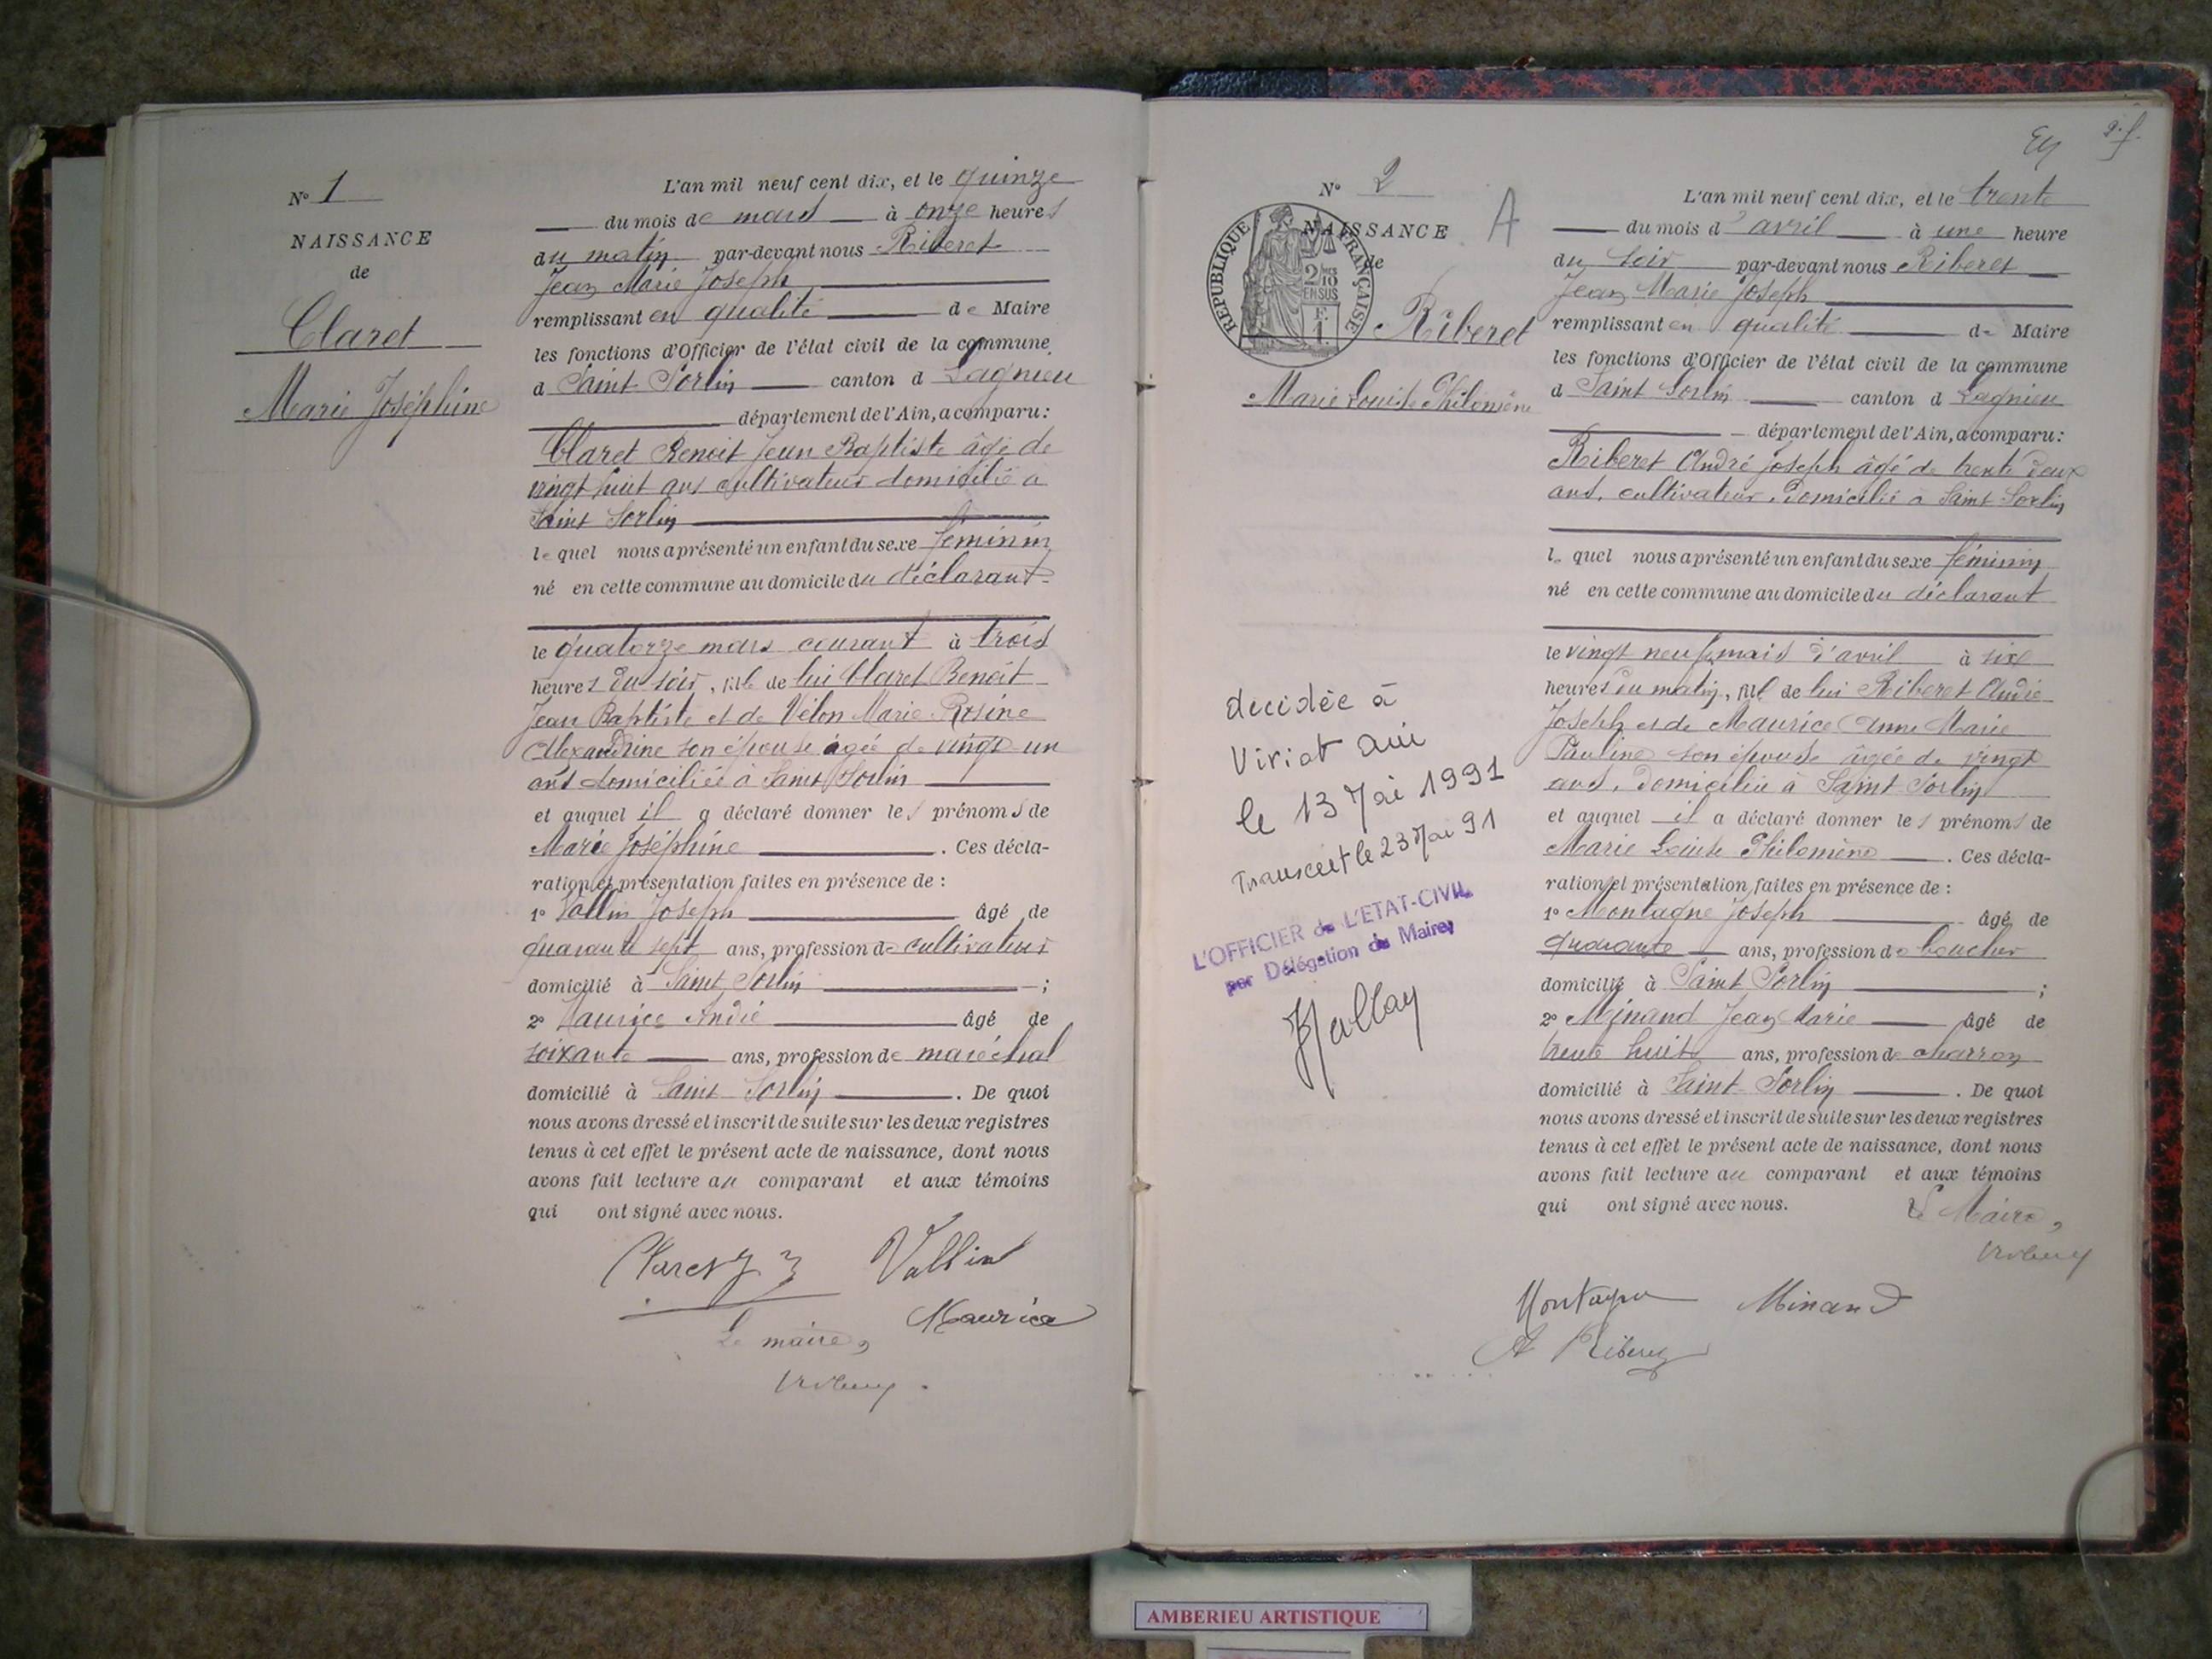 N° 1
NAISSANCE
de
Claret
Marie Joséphine
L'an mil neuf cent dix, et le quinze
du mois de mars à onze heures
du matin par-devant nous Riberet
Jean Marie Joseph
remplissant en qualité de Maire
les fonctions d'Officier de l'état civil de la commune
d Saint Sorlin canton d Lagnieu
département de l'Ain, a comparu:
Claret Benoit Jean Baptiste âgé de
vingt huit ans cultivateur domicilié a
Saint Sorlin
lequel nous a présenté un enfant du sexe féminin
né en cette commune au domicile du déclarant
le quatorze mars courant à trois
heures du soir, fille de lui Claret Benoit
Jean Baptiste et de Vélon Marie Rosine
Alexandrine son épouse âgée de vingt un
ans domiciliée à Saint Sorlin
et auquel il a déclaré donner les prénoms de
Marie Joséphine. Ces décla-
ration et présentation faites en présence de :
1° Vallin Joseph âgé de
quarante sept ans, profession de cultivateur
domicilié à Saint Sorlin ;
2° Maurice André âgé de
soixante ans, profession de maréchal
domicilié à Saint Sorlin. De quoi
nous avons dressé et inscrit de suite sur les deux registres
tenus à cet effet le présent acte de naissance, dont nous
avons fait lecture au comparant et aux témoins
qui ont signé avec nous.
Claret Vallin
Maurice
Le maire,
2 f.
N° 2
NAISSANCE A
de
REPUBLIQUE FRANÇAISE
2/10
EN SUS
F.
1.
Riberet
Marie Louise Philomène
decidée à
Viriat Ain
le 13 Mai 1991
Transcrit le 23 Mai 91
L'OFFICIER de L'ETAT-CIVIL
par Délégation du Maire,
L'an mil neuf cent dix, et le trente
du mois d'avril à une heure
du soir par-devant nous Riberet
Jean Marie Joseph
remplissant en qualité de Maire
les fonctions d'Officier de l'état civil de la commune
d Saint Sorlin canton d Lagnieu
département de l'Ain, a comparu:
Riberet André Joseph âgé de trente deux
ans, cultivateur, Domicilié à Saint-Sorlin
lequel nous a présenté un enfant du sexe féminin
né en cette commune au domicile du déclarant
le vingt neuf mois d'avril à six
heures du matin, fille de lui Riberet André
Joseph et de Maurice Anne Marie
Pauline son épouse âgée de vingt
ans, domiciliée à Saint Sorlin
et auquel il a déclaré donner les prénoms de
Marie Louise Philomène. Ces décla-
ration et présentation faites en présence de :
1° Montagne Joseph âgé de
quarante ans, profession de boucher
domicilié à Saint Sorlin ;
2° Minand Jean Marie âgé de
trente huit ans, profession de charron
domicilié à Saint Sorlin. De quoi
nous avons dressé et inscrit de suite sur les deux registres
tenus à cet effet le présent acte de naissance, dont nous
avons fait lecture au comparant et aux témoins
qui ont signé avec nous. Le Maire,
Montagne Minand
A Riberet
AMBERIEU ARTISTIQUE